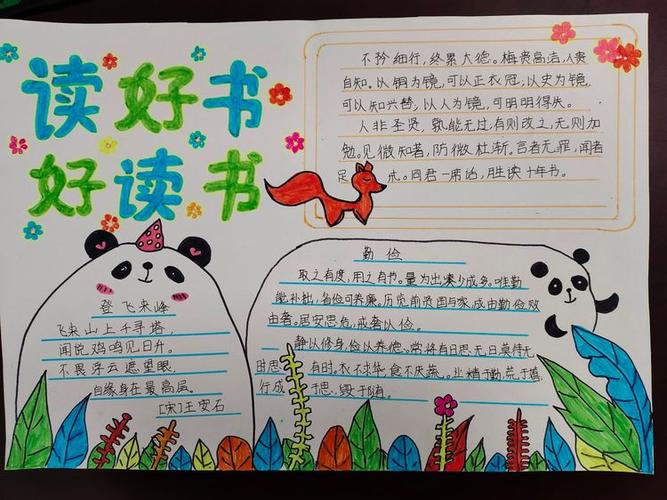 读好书
好读书
不矜细行，终累大德。梅贵高洁，人贵
自知。以铜为镜，可以正衣冠，以史为镜，
可以知兴替，以人为镜，可明明得失。
人非圣贤，孰能无过，有则改之，无则加
勉。见微知著，防微杜渐，言者无罪，闻者
足 。同君一席话，胜读十年书。
登飞来峰
飞来山上千寻塔，
闻说鸡鸣见日升。
不畏浮云遮望眼，
自缘身在最高层。
[宋]王安石
勤俭
取之有度，用之有书。量为出 少成多。唯勤
能补拙，各俭可养廉。历览前贤国与家，成由勤俭败
由奢。居安思危，戒奢以俭。
静以修身，俭以养德。常将有日思无日，莫待无
时思 有时。衣不求华，食不厌蔬。业精于勤，荒于嬉，
行成 于思，毁于随。